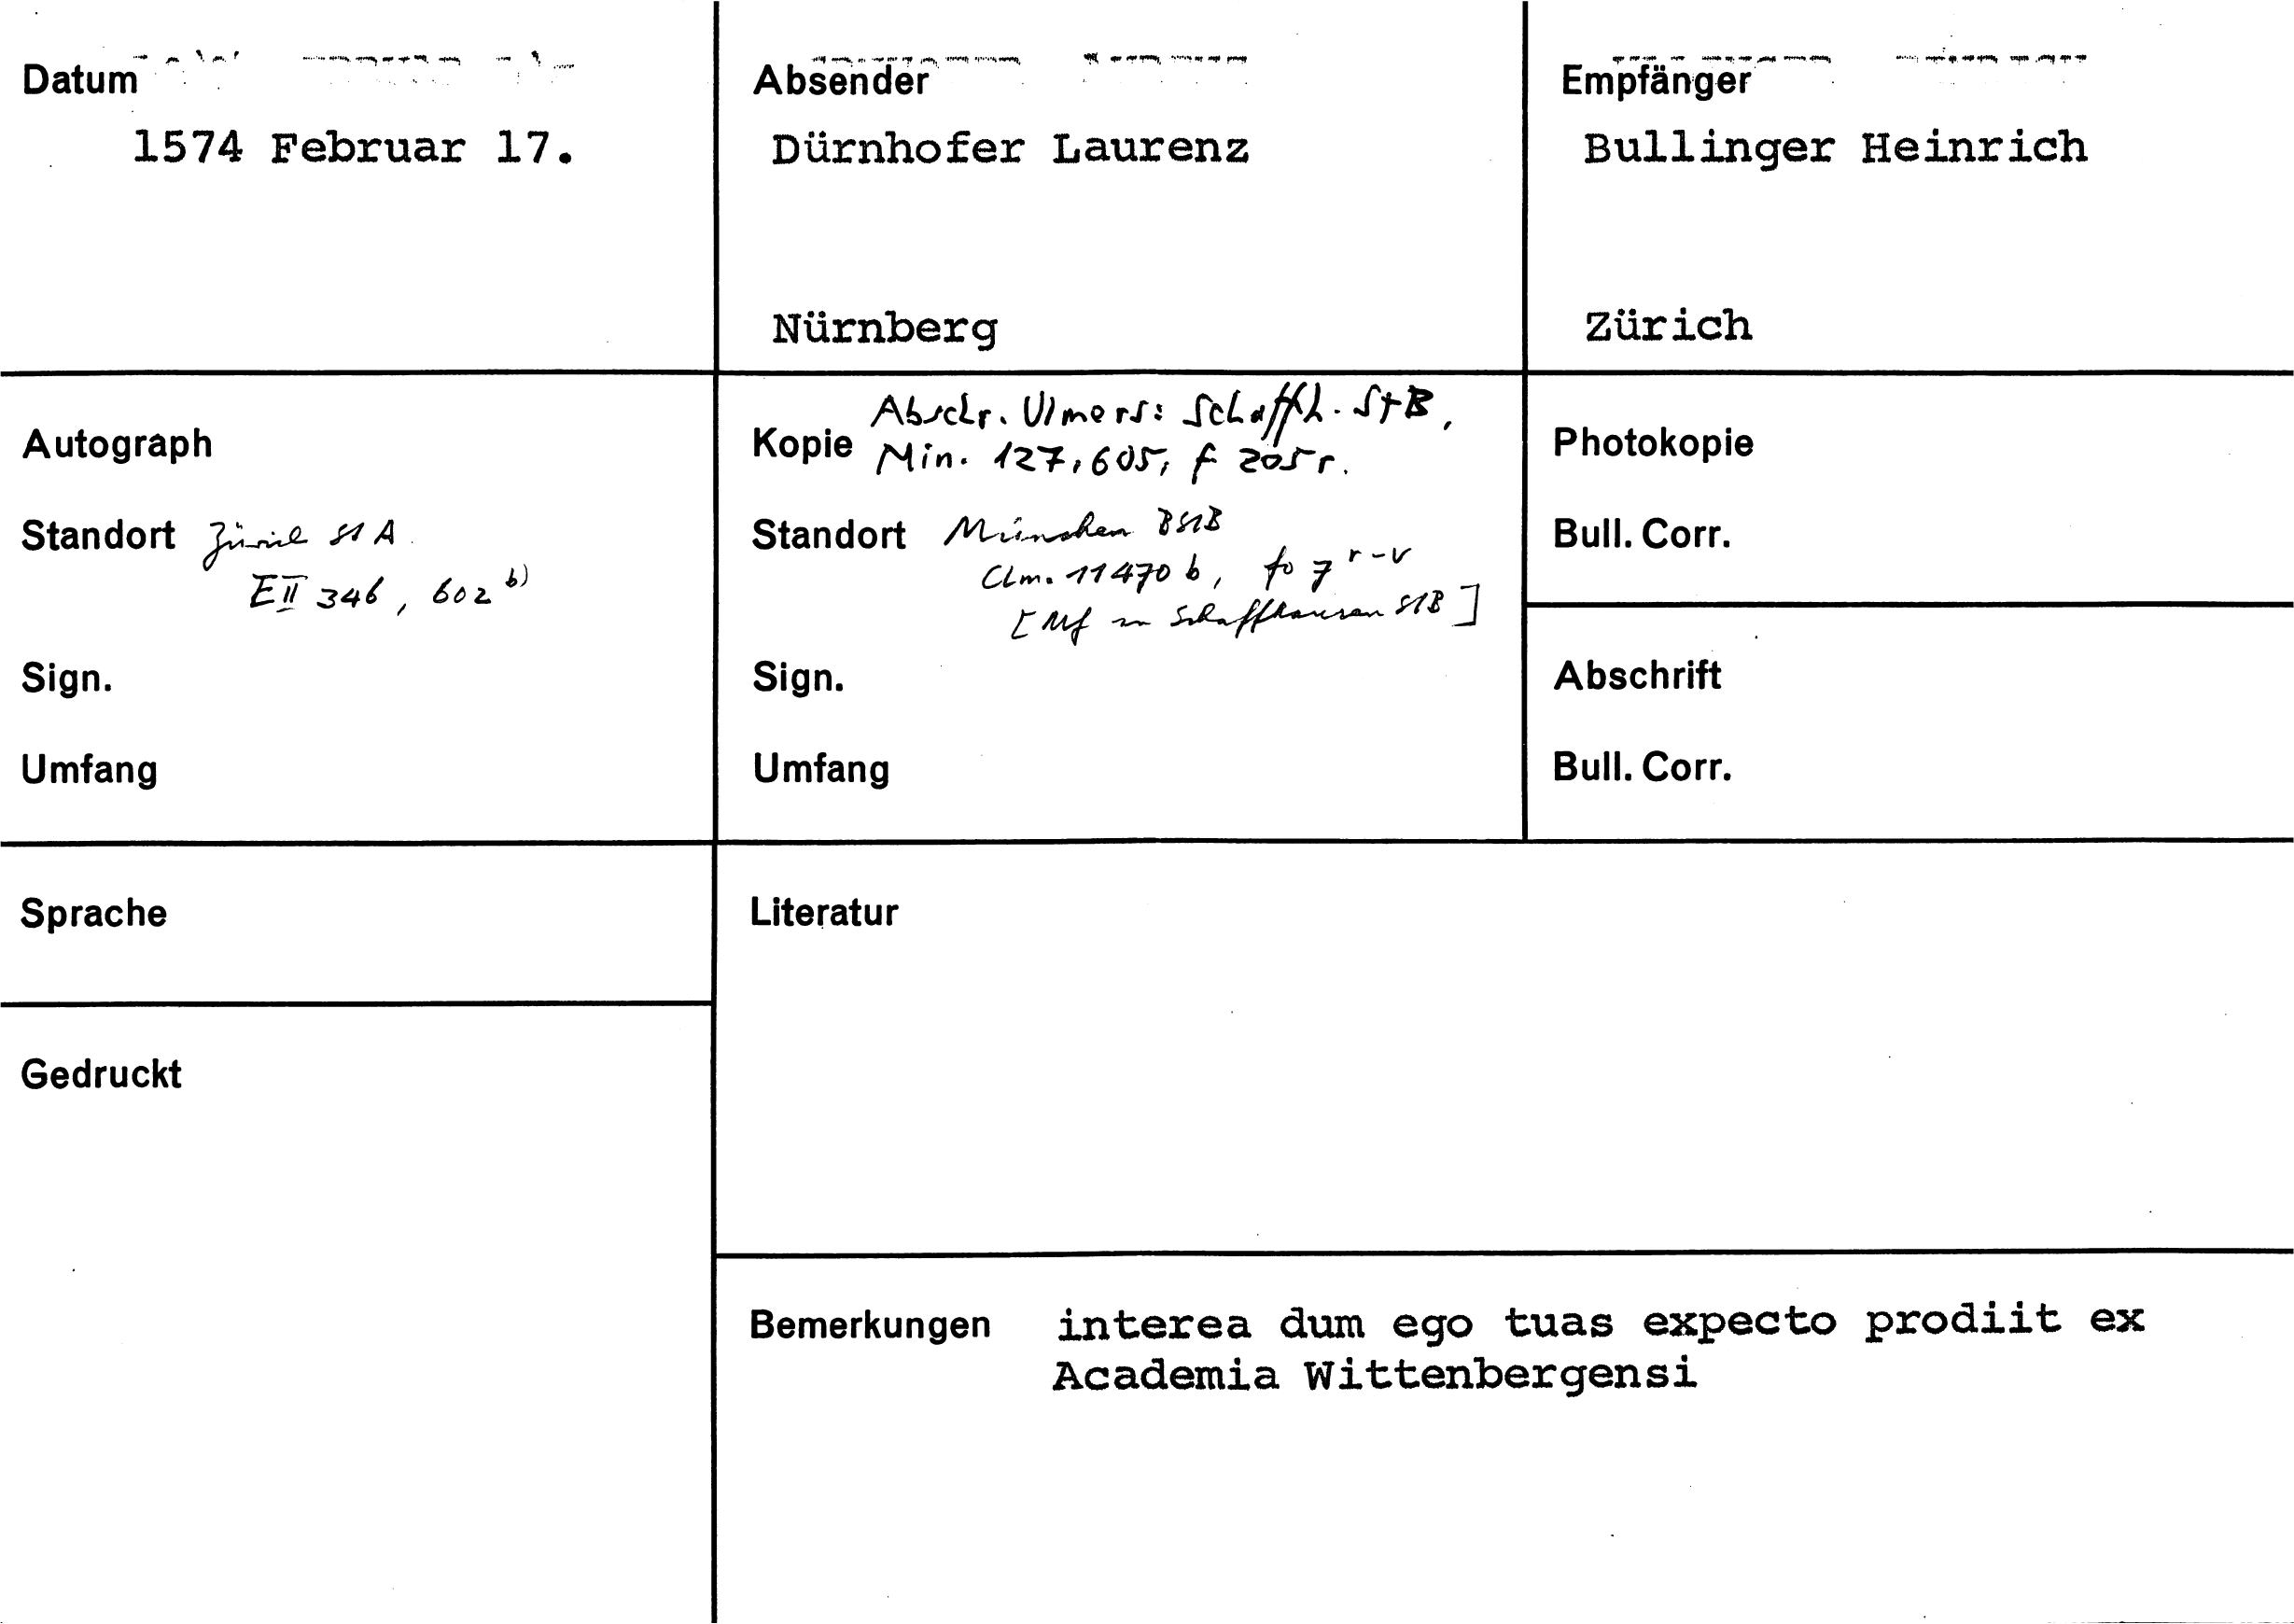 Datum
1574 Februar 17.
Absender
Dürnhofer Laurenz
Nürnberg
Empfänger
Bullinger Heinrich
Zürich
Autograph
Standort Zürich StA
EII 346, 602 b)
Sign.
Umfang
Kopie Abschr. Ulmers: Schaffh. StB,
Min. 127, 605, f 205r.
Standort München BStB
Clm. 11470 b, fo 7 r-v
[Mf in Schaffhausen StB]
Sign.
Umfang
Photokopie
Bull. Corr.
Abschrift
Bull. Corr.
Sprache
Literatur
Gedruckt
Bemerkungen interea dum ego tuas expecto prodiit ex
Academia Wittenbergensi